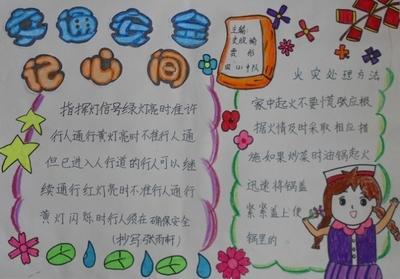 交通安全
记心间
指挥灯信号绿灯亮时准许
行人通行黄灯亮时不准行人通
但已进入人行道的行人可以继
续通行红灯亮时不准行人通行
黄灯闪烁时行人须在确保安全
(抄写张雨轩)
主编:
中队
火灾处理方法
家中起火不要慌张应根
据火情及时采取相应措
施如果炒菜时油锅起火
迅速将锅盖
紧紧盖上使
锅里的